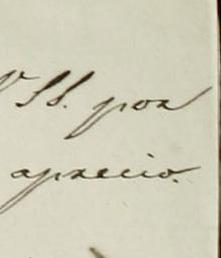 SS. por
aprecio.